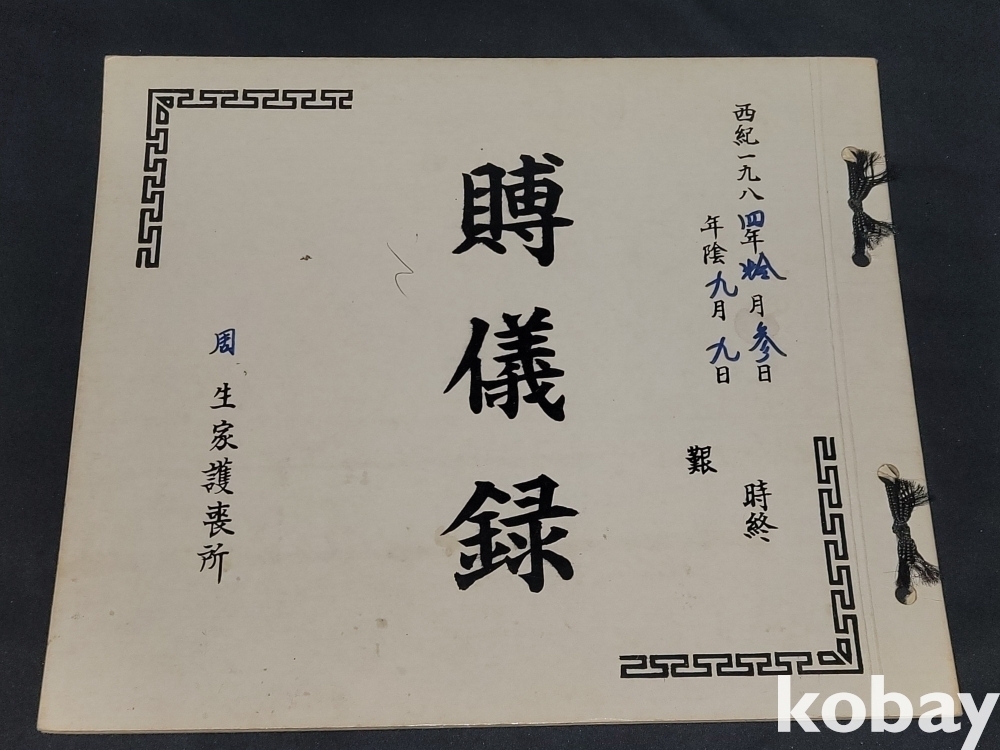 西紀一九八四年拾月參日
年陰九月九日
時終
艱
賻儀録
周生家護喪所
kobay